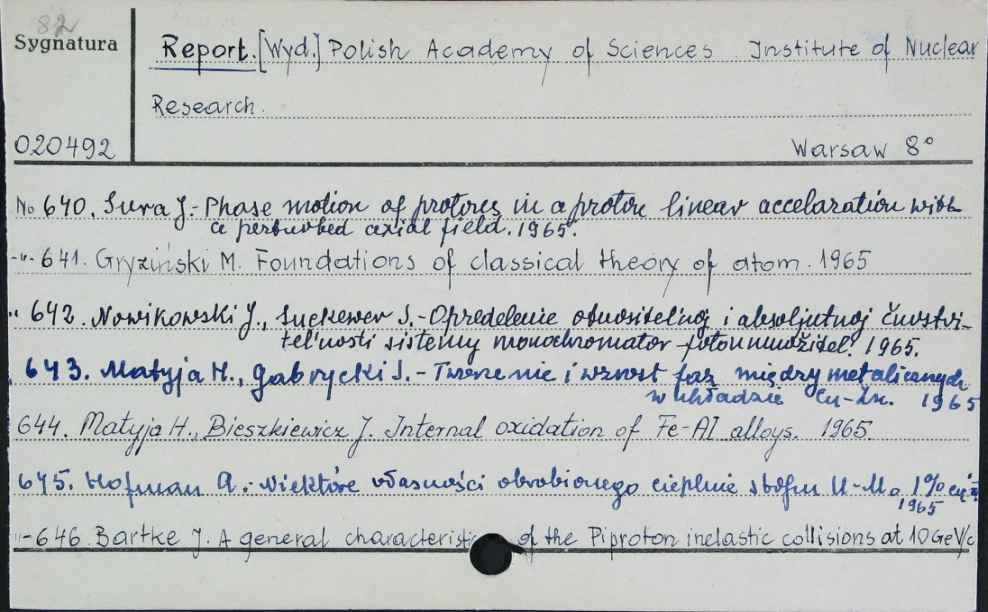 82
Sygnatura
Report. [Wyd.] Polish Academy of Sciences Institute of Nuclear
Research.
020492
Warsaw 8°
No 640. Sura J.- Phase motion of protons in a proton linear accelaration with
a perturbed axial field. 1965.
-"- 641. Gryziński M. Foundations of classical theory of atom. 1965
" 642. Nowikowski J., Suckewer S.- Opredelenie otnositel'noj i absoljutnoj čuvstvi-
tel'nosti sistemy monochromator - fotoumnožitel. 1965.
" 643. Matyja H., Gabrycki J. - Tworzenie i wzrost faz międzymetalicznych
w układzie Cu-Zn. 1965
644. Matyja H., Bieszkiewicz J. Internal oxidation of Fe-Al alloys. 1965.
645. Hofman A.- Niektóre własności obrobionego cieplnie stopu U-Mo 1% cięż.
1965
"- 646. Bartke J. A general characteristic of the Piproton inelastic collisions at 10 GeV/c